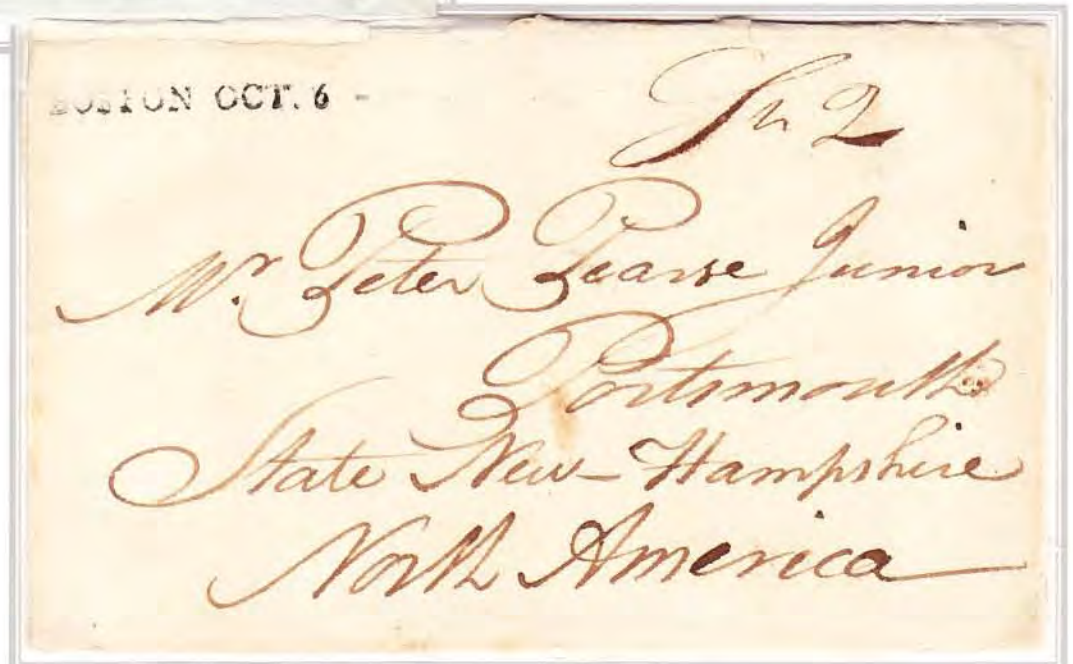 BOSTON OCT. 6 -
Sh 2
Mr. Peter Pearse Junior
Portsmouth
State New-Hampshire
North America